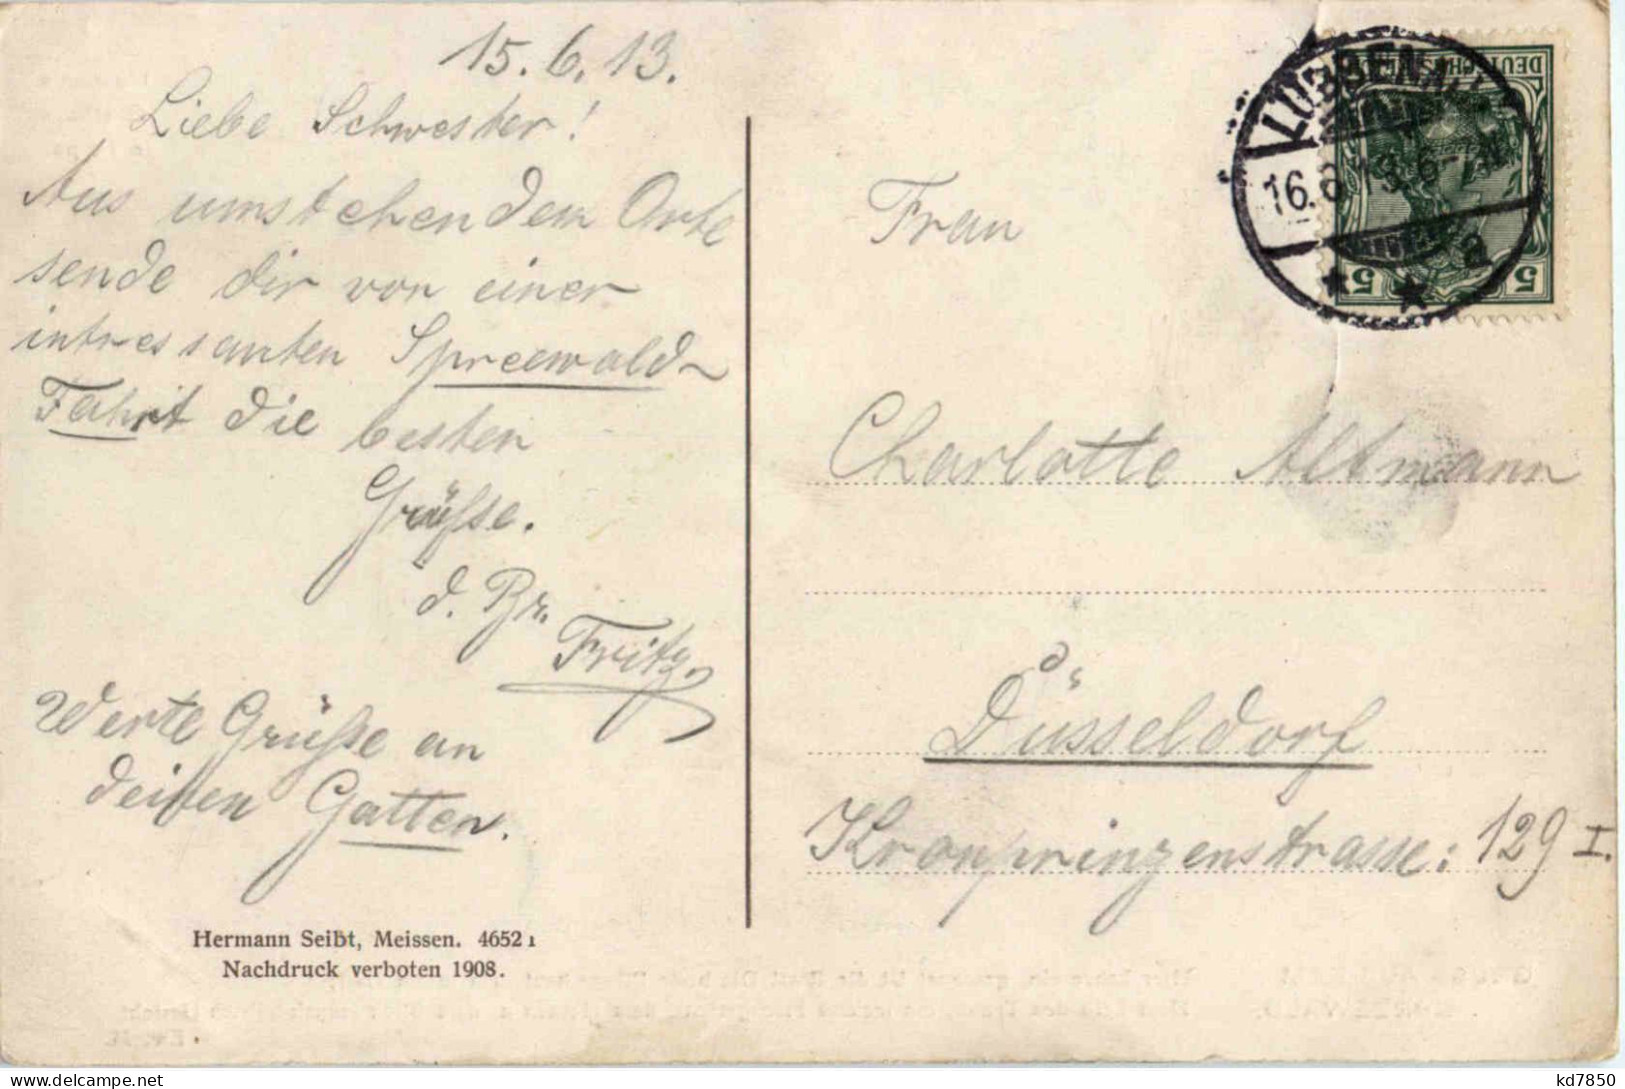 15. 6. 13.
Liebe Schwester!
Aus umstehendem Orte
sende dir von einer
intressanten Spreewald-
Fahrt die besten
Grüsse.
d. Br.
Fritz.
Werte Grüsse an
deinen Gatten.
Hermann Seibt, Meissen. 4652 1
Nachdruck verboten 1908.
LÜBBENAU
16.6.13. 6-7N
a
DEUTSCHES REICH
5 5
Frau
Charlotte Altmann
Düsseldorf
Kronprinzenstrasse: 129 I.
kd7850